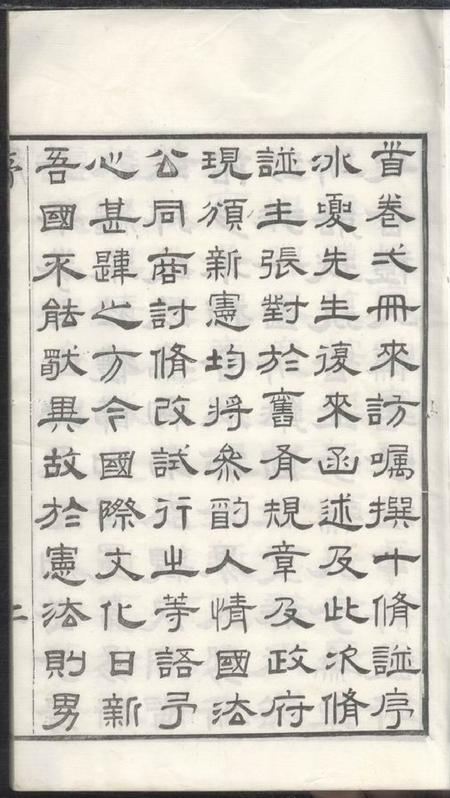 首卷弌冊來訪囑撰十脩譜序
冰夔先生復來函述及此次脩
譜主張對於舊有規章及政府
現頒新憲均將參酌人情國法
公同商討脩改試行之等語予
心甚韙之方今國際文化日新
吾國不能獸異故於憲法則男
序
二